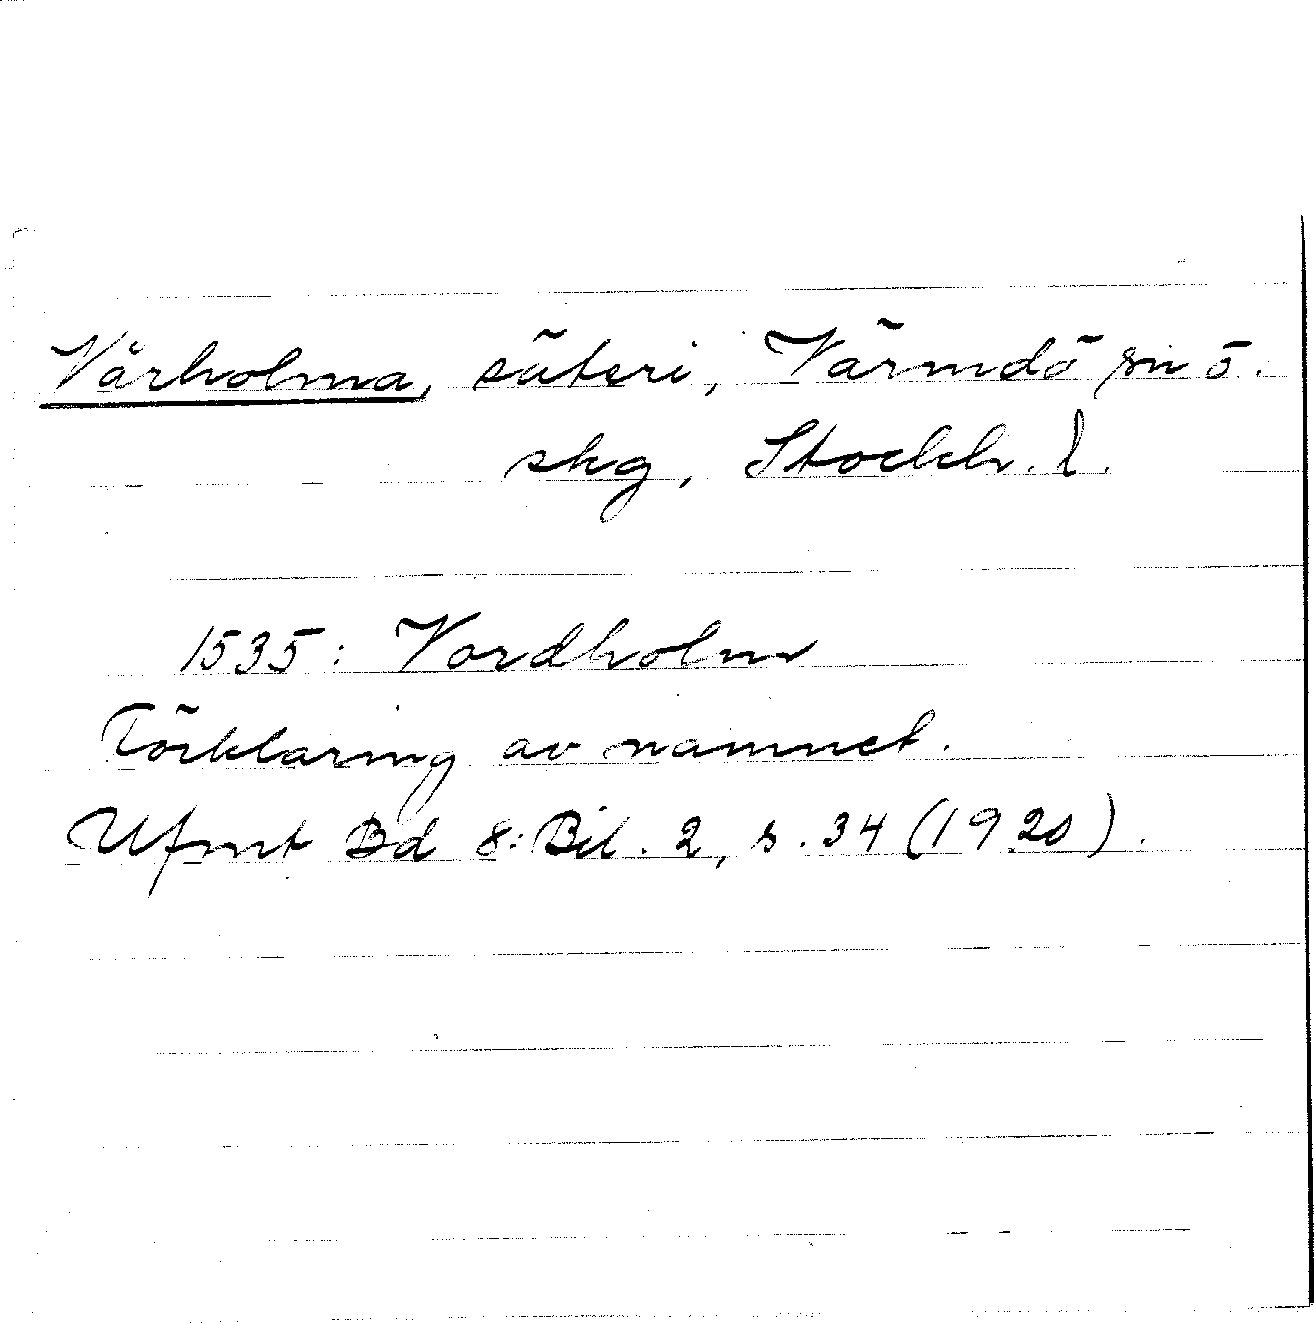 Vårholma, säteri, Värmdö sn o.
skg, Stockh. l.
1535: Vordholm
Förklaring av namnet.
Ufmt Bd 8: Bil. 2, s. 34 (1920).